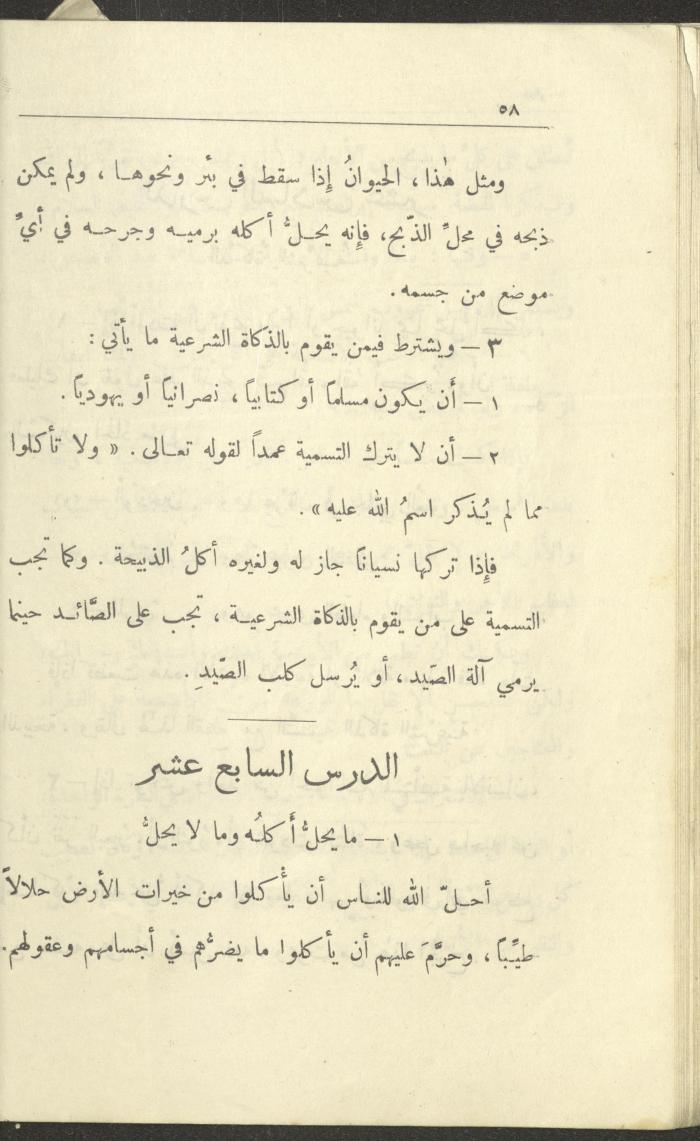 ٥٨
ومثل هٰذا، الحيوانُ إِذا سقط في بئر ونحوهـا ، ولم يمكن
ذبحه في محلِّ الذّبح، فإنه يحـلُّ أكله برميـه وجرحـه في أيِّ
موضع من جسمه.
٣ – ويشترط فيمن يقوم بالذكاة الشرعية ما يأتي :
١ – أَن يكون مسلماً أو كتابياً ، نصرانياً أو يهودياً .
٢ – أن لا يترك التسمية عمداً لقوله تعـالى . « ولا تأكلوا
مما لم يُـذكر اسمُ الله عليه » .
فإِذا تركها نسياناً جاز له ولغيره أكلُ الذبيحة . وكما تجب
التسمية على من يقوم بالذكاة الشرعيـة ، تجب على الصَّائـد حينما
يرمي آلة الصّيد ، أو يُرسل كلب الصّيدِ .
الدرس السابع عشر
١ – ما يحلُّ أَكلُـه وما لا يحلُّ
أحـلّ الله للنـاس أن يأْكلوا من خيرات الأرض حلالاً
طيِّباً ، وحرَّمَ عليهم أن يأكلوا ما يضرُّهم في أجسامهم وعقولهم.